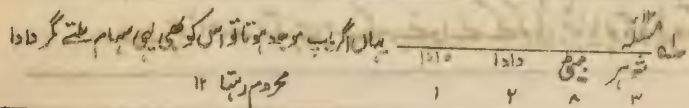 مسئلہ ۱۲ یہاں اگر باپ موجود ہوتا تو اس کو بھی یہی سہام ملتے مگر دادا
شوہر بیٹی دادا دادا محروم رہتا ۱۲
۳ ۸ ۲ ۱